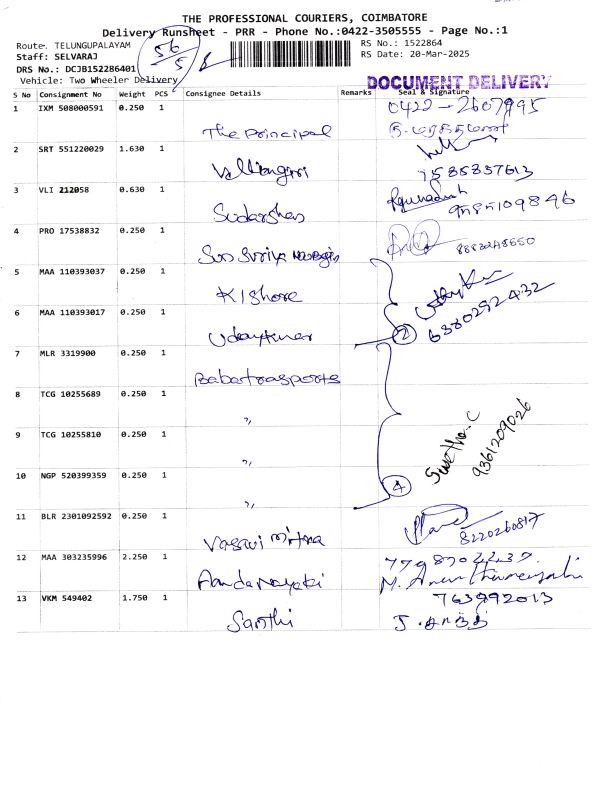 THE PROFESSIONAL COURIERS, COIMBATORE
Delivery Runsheet - PRR - Phone No.:0422-3505555 - Page No.:1
Route. TELUNGUPALAYAM
RS No.: 1522864
Staff: SELVARAJ
56/5
RS Date: 20-Mar-2025
DRS No.: DCJB152286401
Vehicle: Two Wheeler Delivery
DOCUMENT DELIVERY
S No Consignment No Weight PCS Consignee Details Remarks Seal & Signature
1 IXM 508000591 0.250 1 The Principal 0422-2607995
2 SRT 551220029 1.630 1 Velliangiri 7585857613
3 VLI 212058 0.630 1 Sudarshan 9585109846
4 PRO 17538832 0.250 1
5 MAA 110393037 0.250 1 Kishore
6 MAA 110393017 0.250 1 Udaykumar 2 6380292432
7 MLR 3319900 0.250 1 Babatrasports
8 TCG 10255689 0.250 1 "
9 TCG 10255810 0.250 1 "
Swetha.C
9361209026
10 NGP 520399359 0.250 1 " 4
11 BLR 2301092592 0.250 1 Vasavi Mithra 8220260817
12 MAA 303235996 2.250 1 Aandanayaki
13 VKM 549402 1.750 1 Santhi 763992013
J. சாந்தி